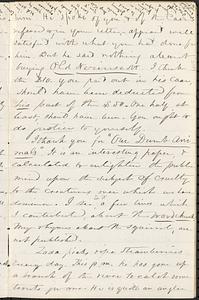 him. He spoke of you & of the Case
referred in your letter, appeared well
satisfied with what you had done for
him. But he said nothing about
buying Old Novemseott. I think
the $10. you paid out in his case
should have been deducted from
his part of the $50. One half at
least, should have been. You ought to
do justice to yourself.
I thank you for "Our Dumb Ani
mals". It is an interesting paper, &
calculated to enlighten the public
mind upon the subject of Cruelty
to the Creatures over which we have
dominion. I see a few lines which
I contributed about the woodchuck
My rhymes about the squirrel, are
not published.
picks strawberries
every day. This p.m. he has gone up
a branch of the river to catch some
trouts for me. He is quite an angler.